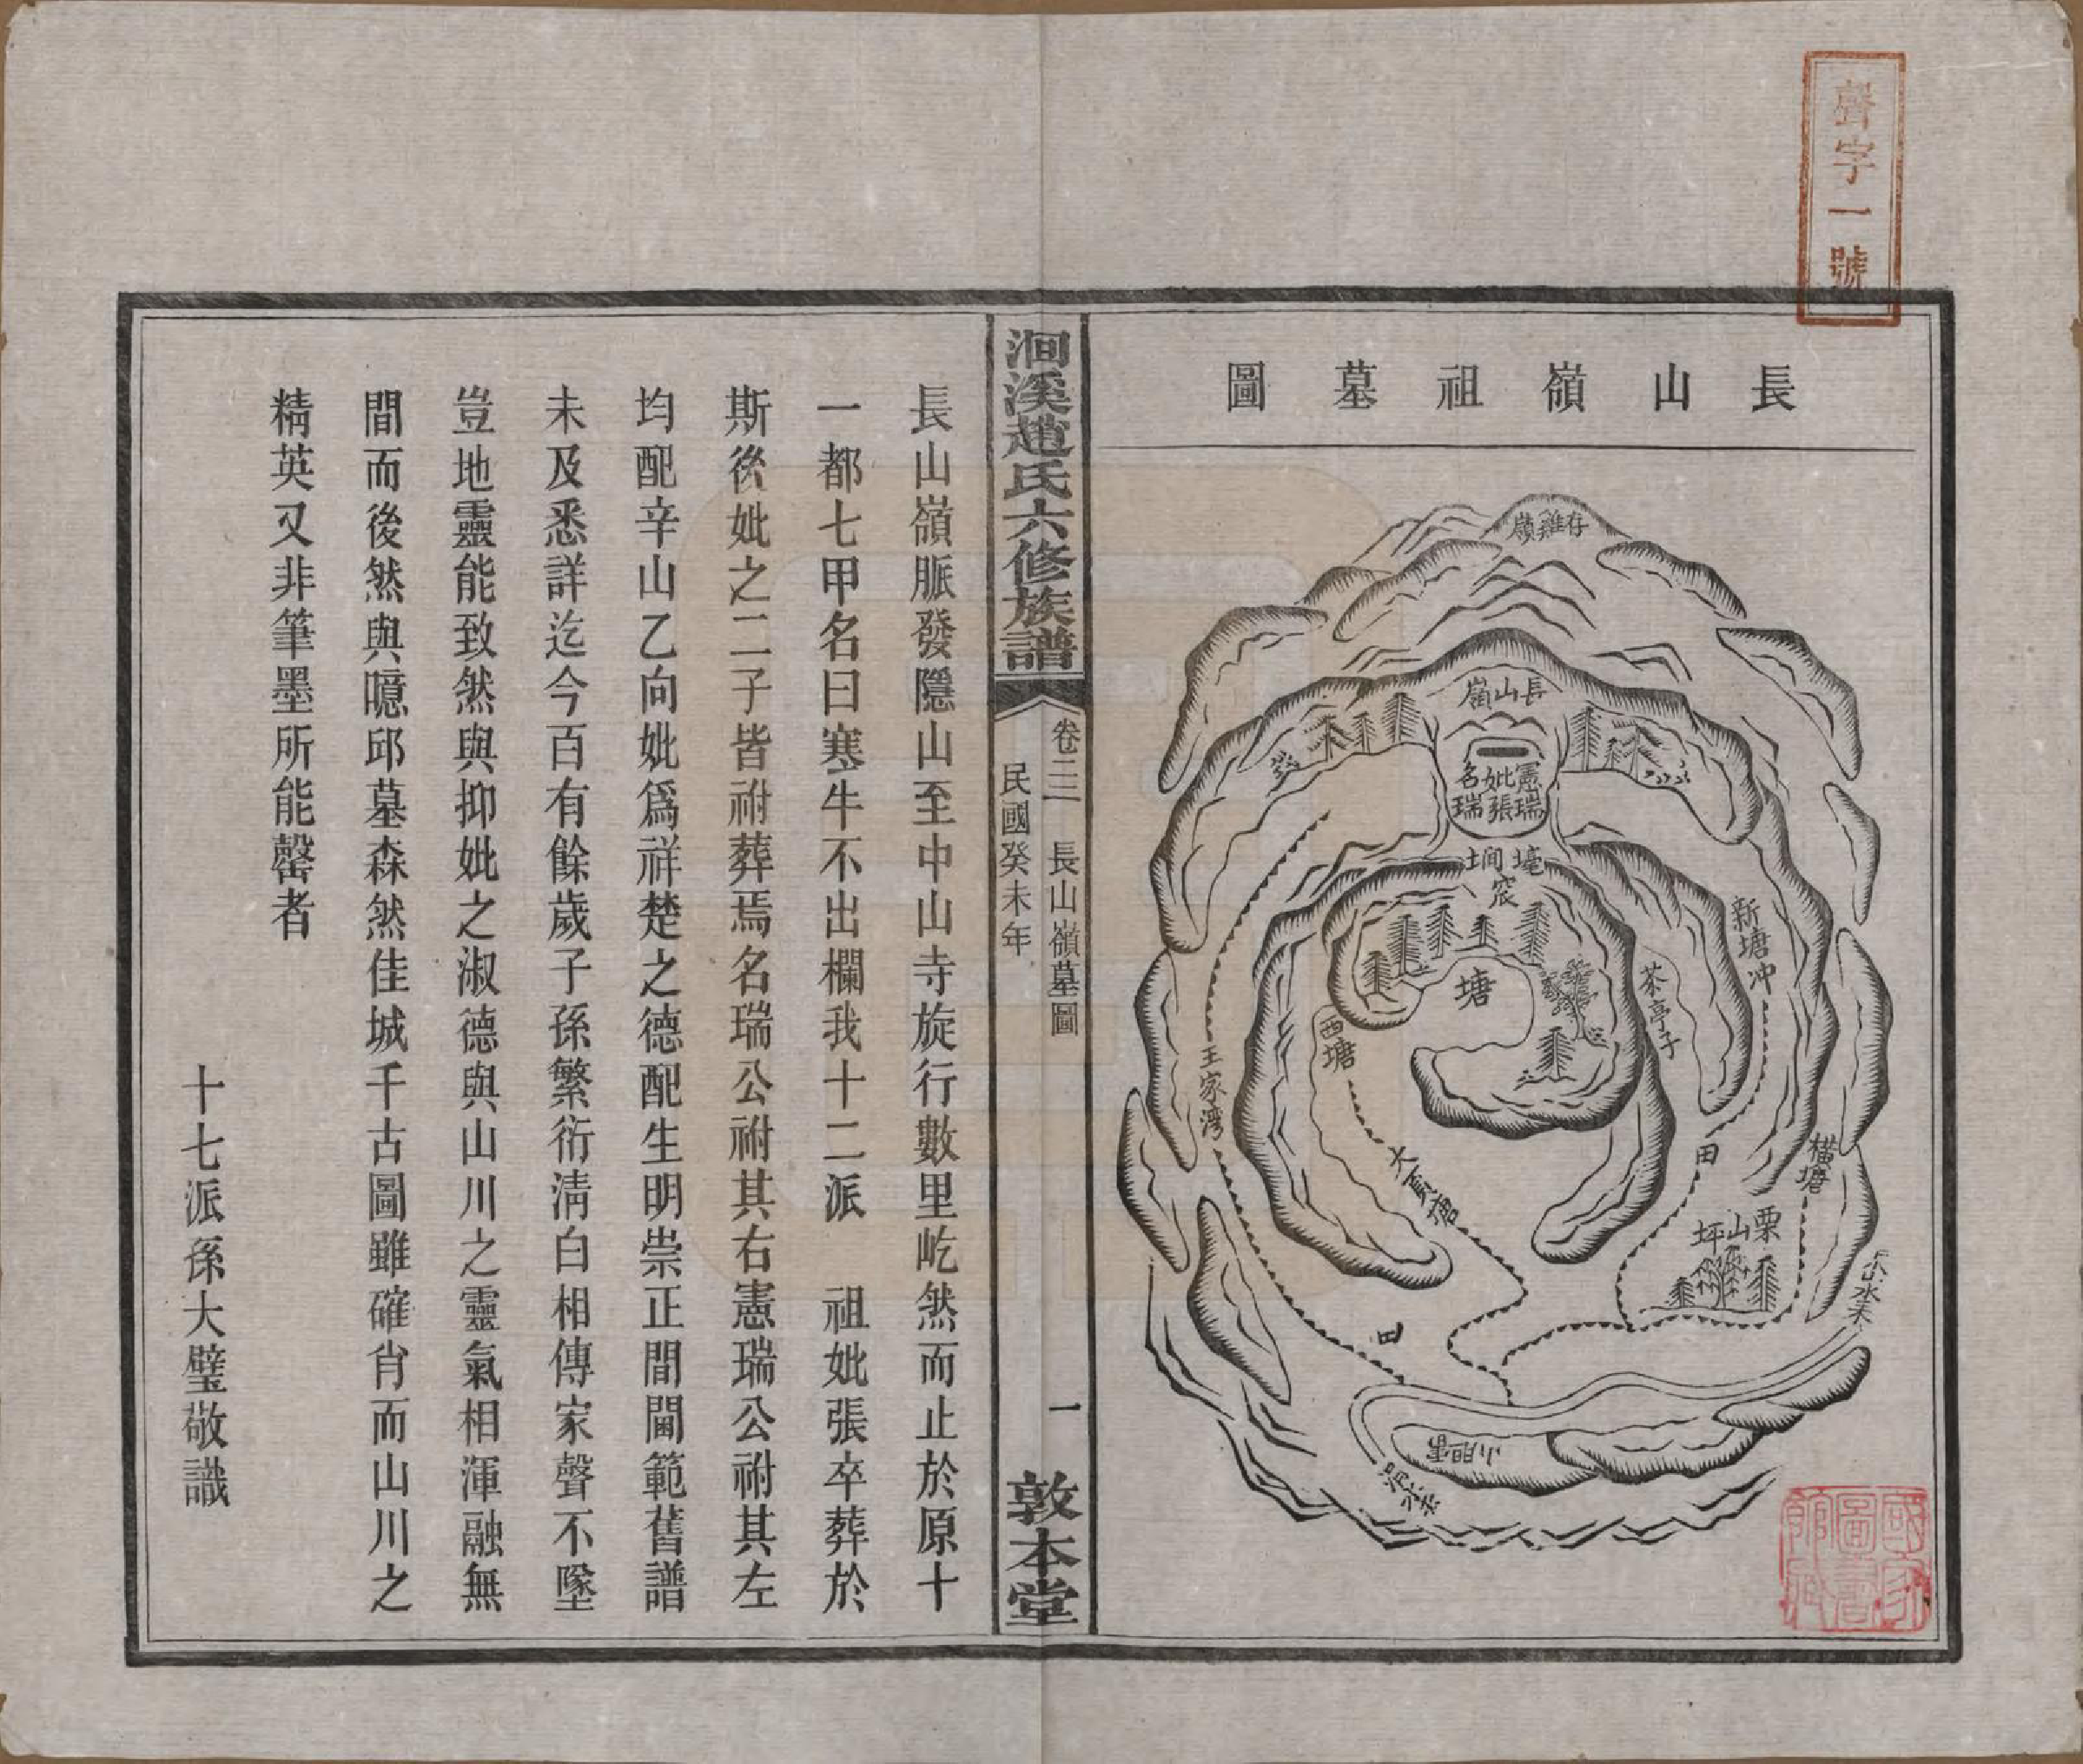 聲字一號
長山嶺祖墓圖
存雞嶺
長山嶺
憲瑞
妣張
名瑞
新塘冲
茶亭子
塘
西塘
王家湾
田
橫塘
栗山坪
洄溪趙氏六修族譜
卷三二 長山嶺墓圖
民國癸未年
一
敦本堂
長山嶺脈發隱山至中山寺旋行數里屹然而止於原十
一都七甲名曰寒牛不出欄我十二派 祖妣張卒葬於
斯後妣之二子皆祔葬焉名瑞公祔其右憲瑞公祔其左
均配辛山乙向妣爲祥楚之德配生明崇正間閫範舊譜
未及悉詳迄今百有餘歲子孫繁衍淸白相傳家聲不墜
豈地靈能致然與抑妣之淑德與山川之靈氣相渾融無
間而後然與噫邱墓森然佳城千古圖雖確肖而山川之
精英又非筆墨所能罄者
十七派孫大璧敬識
國家圖書館藏